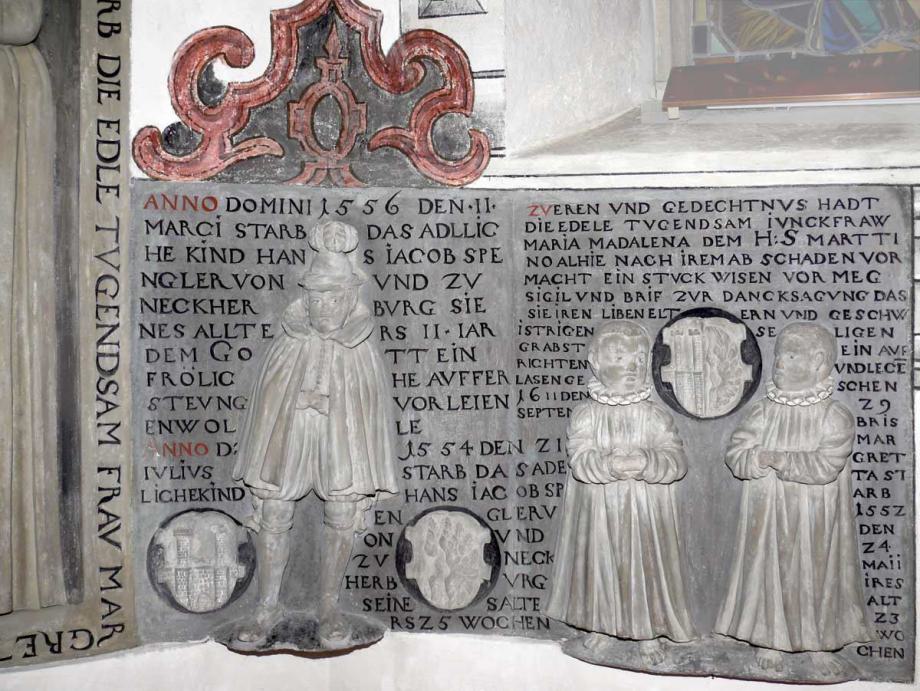 RB DIE EDLE TVGENDSAM FRAV MAR
GRET
ANNO DOMINI 1556 DEN·II·
MARCI STARB DAS ADLLIC
HE KIND HANS IACOB SPE
NGLER VON VND ZV
NECKHERBVRG SIE
NES ALLTERS II·IAR
DEM GOTT EIN
FRÖLICHE AVFFER
STEVNG VORLEIEN
ENWOLLE
ANNO D: 1554·DEN ZI
IVLIVS STARB DAS ADE
LICHE KIND HANS IACOB SP
ENGLER V
ON VND
ZV NECK
HERBVRG
SEINES ALTE
RS Z5 WOCHEN
ZVEREN VND GEDECHTNVS HADT
DIE EDELE TVGENDSAM IVNCKFRAW
MARIA MADALENA DEM H:S MARTTI
NO ALHIE NACH IREM AB SCHADEN VOR
MACHT EIN STVCK WISEN VOR MEG
SIGIL VND BRIF ZVR DANCKSAGVNG DAS
SIE IREN LIBEN ELTERN VND GESCHW
ISTRIGEN SELIGEN
GRABST EIN AVF
RICHTEN VND LECE
LASEN GESCHEN
1611 DEN Z9
SEPTEMBRIS
MAR
GRET
TA ST
ARB
155Z
DEN
Z4·
MAII
IRES
ALT
Z3
WO
CHEN